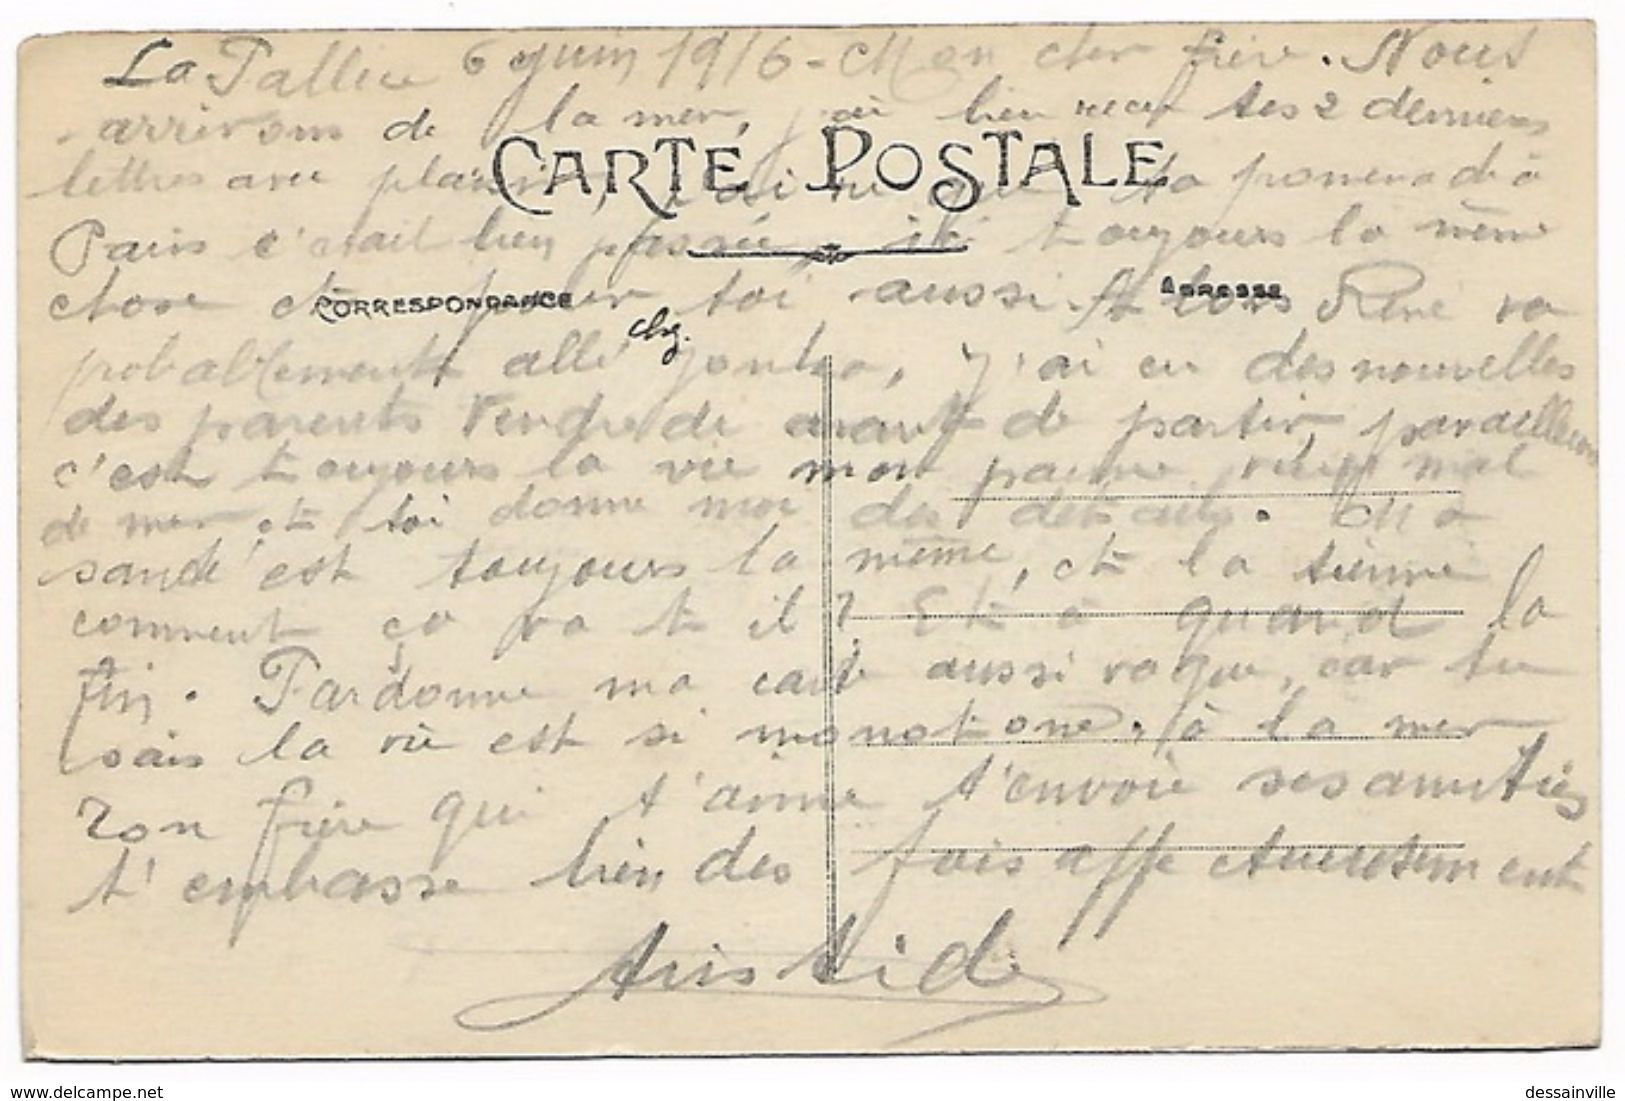 La Pallice 6 Juin 1916 - Mon cher frère. Nous
arrivons de la mer, j'ai bien recu tes 2 dernieres
lettres avec plaisir, que ta promenade à
CARTE POSTALE
Paris c'etait bien passée, ici toujours la même
chose et pour toi aussi. Alors René va
CORRESPONDANCE
ADRESSE
probablement allé, j'ai eu des nouvelles
des parents Vendredi avant de partir,
c'est toujours la vie mon pauvre vieux mal
de mer, et toi donne moi des details. Ma
santé est toujours la même, et la tienne
comment ça va t il ? Et à quand la
fin. Pardonne ma carte aussi vague, car tu
sais la vie est si monotone, à la mer
Ton frère qui t'aime t'envoie ses amitiés
t'embrasse bien des fois affectueusement
Aristide
dessainville